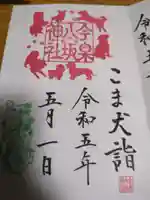 こま犬詣
令和五年
五月一日
今泉
八坂
神社
令和五